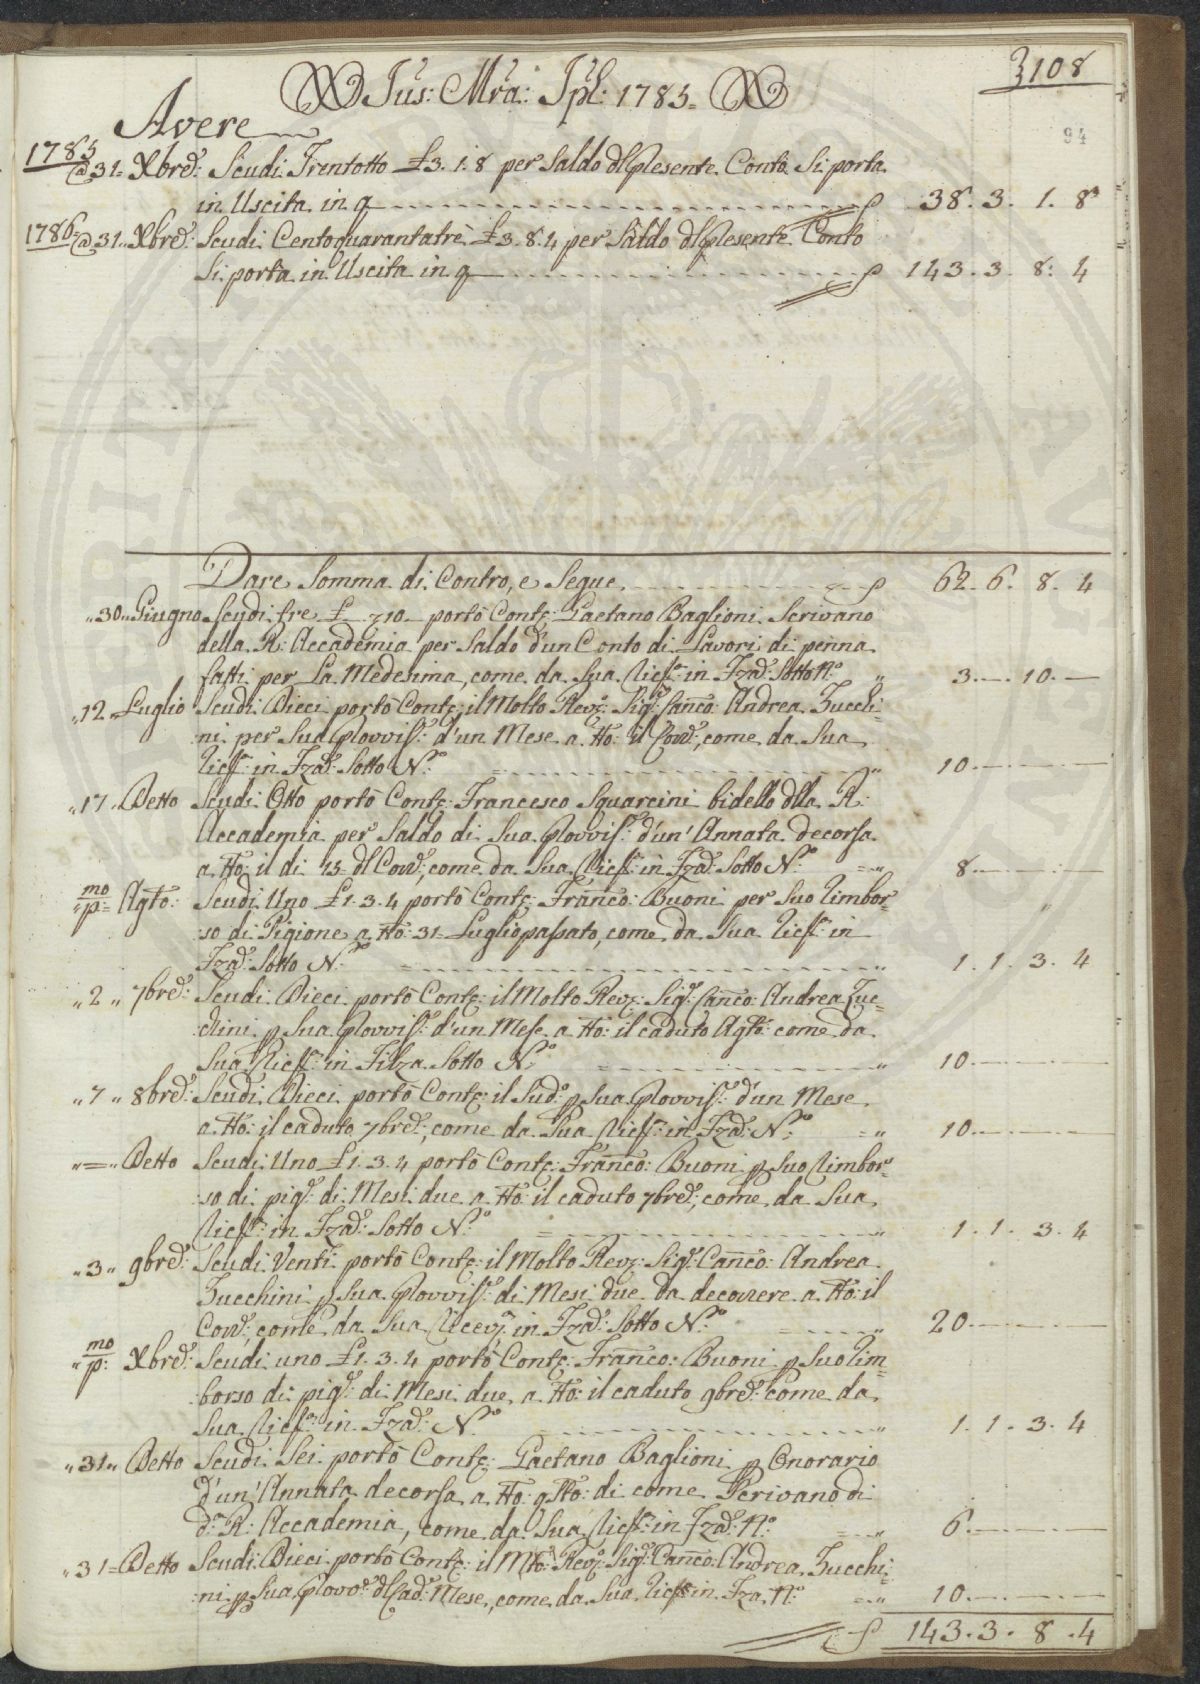 Jus: Mra: Jpl: 1785.
3108
94
Avere
1785
@ 31= Xbre: Scudi Trentotto £3.1.8 per Saldo dl Presente Conto Si porta
in Uscita in q 38. 3. 1. 8
1786 @ 31.. Xbre: Scudi Centoquarantatrè £3.8.4 per Saldo dl Presente Conto
Si porta in Uscita in q 143. 3. 8. 4
Dare Somma di Contro, e Segue 62. 6. 8. 4
„30„ Giugno Scudi tre £ —710— portò Conte: Gaetano Baglioni Scrivano
della R: Accademia per Saldo d'un Conto di Lavori di penna
fatti per La Medesima, come da Sua Ricef: in Fza: Sotto N.o „ 3. — 10. —
„12„ Luglio Scudi Dieci portò Conte: il Molto Reve: Sige: Canco: Andrea Zucchi=
:ni per Sua Provvise: d'un Mese a tto: il Corre:, come da Sua
Ricef: in Fza: Sotto N.o „ 10. — —
„17„ Detto Scudi Otto portò Conte: Francesco Squarcini bidello dlla R:
Accademia per Saldo di Sua Provvise: d'un' Annata decorsa
a tto: il di 15= dl Corre:, come da Sua Ricef: in Fza: Sotto N.o =„ 8. — —
„p:mo= Agto: Scudi Uno £1.3.4 portò Conte: Franco: Buoni per Suo Rimbor=
:so di Pigione a tto: 31= Luglio passato, come da Sua Ricef: in
Fza: Sotto N.o „ 1. 1. 3. 4
„2„ 7bre: Scudi Dieci portò Conte: il Molto Reve: Sige: Canco: Andrea Zuc=
:chini p Sua Provvise: d'un Mese a tto: il caduto Agto: come da
Sua Ricef: in Filza Sotto N.o „ 10. — —
„7„ 8bre: Scudi Dieci portò Conte: il Sudo: p Sua Provvise: d'un Mese
a tto: il caduto 7bre:, come da Sua Ricef: in Fza: N.o =„ 10. — —
„=„ Detto Scudi Uno £1.3.4 portò Conte: Franco: Buoni p Suo Rimbor=
:so di pige: di Mesi due a tto: il caduto 7bre:, come da Sua
Ricef: in Fza: Sotto N.o = „ 1. 1. 3. 4
„3„ 9bre: Scudi Venti portò Conte: il Molto Reve: Sige: Canco: Andrea
Zucchini p Sua Provvise: di Mesi due da decorrere a tto: il
Corre:, come da Sua Riceve: in Fza: Sotto N.o „ 20. — —
„p:mo Xbre: Scudi uno £1.3.4 portò Conte: Franco: Buoni p Suo Rim=
:borso di pige: di Mesi due a tto: il caduto 9bre: Come da
Sua Ricef: in Fza: N.o „ 1. 1. 3. 4
„31„ Detto Scudi Sei portò Conte: Gaetano Baglioni p Onorario
d'un' Annata decorsa a tto: qto: di come Scrivano di
d:a R: Accademia, come da Sua Ricef: in Fza: N.o = „ 6. — —
„31= Detto Scudi Dieci portò Conte: il Mto: Reve: Sige: Canco: Andrea Zucchi=
:ni p Sua Provve: dl Cade: Mese, come da Sua Ricef: in Fza N.o =„ 10. — —
143. 3. 8. 4